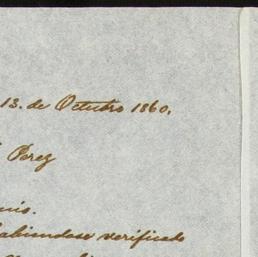 13. de Octubre 1860.
Perez
mio.
abiendose verificado